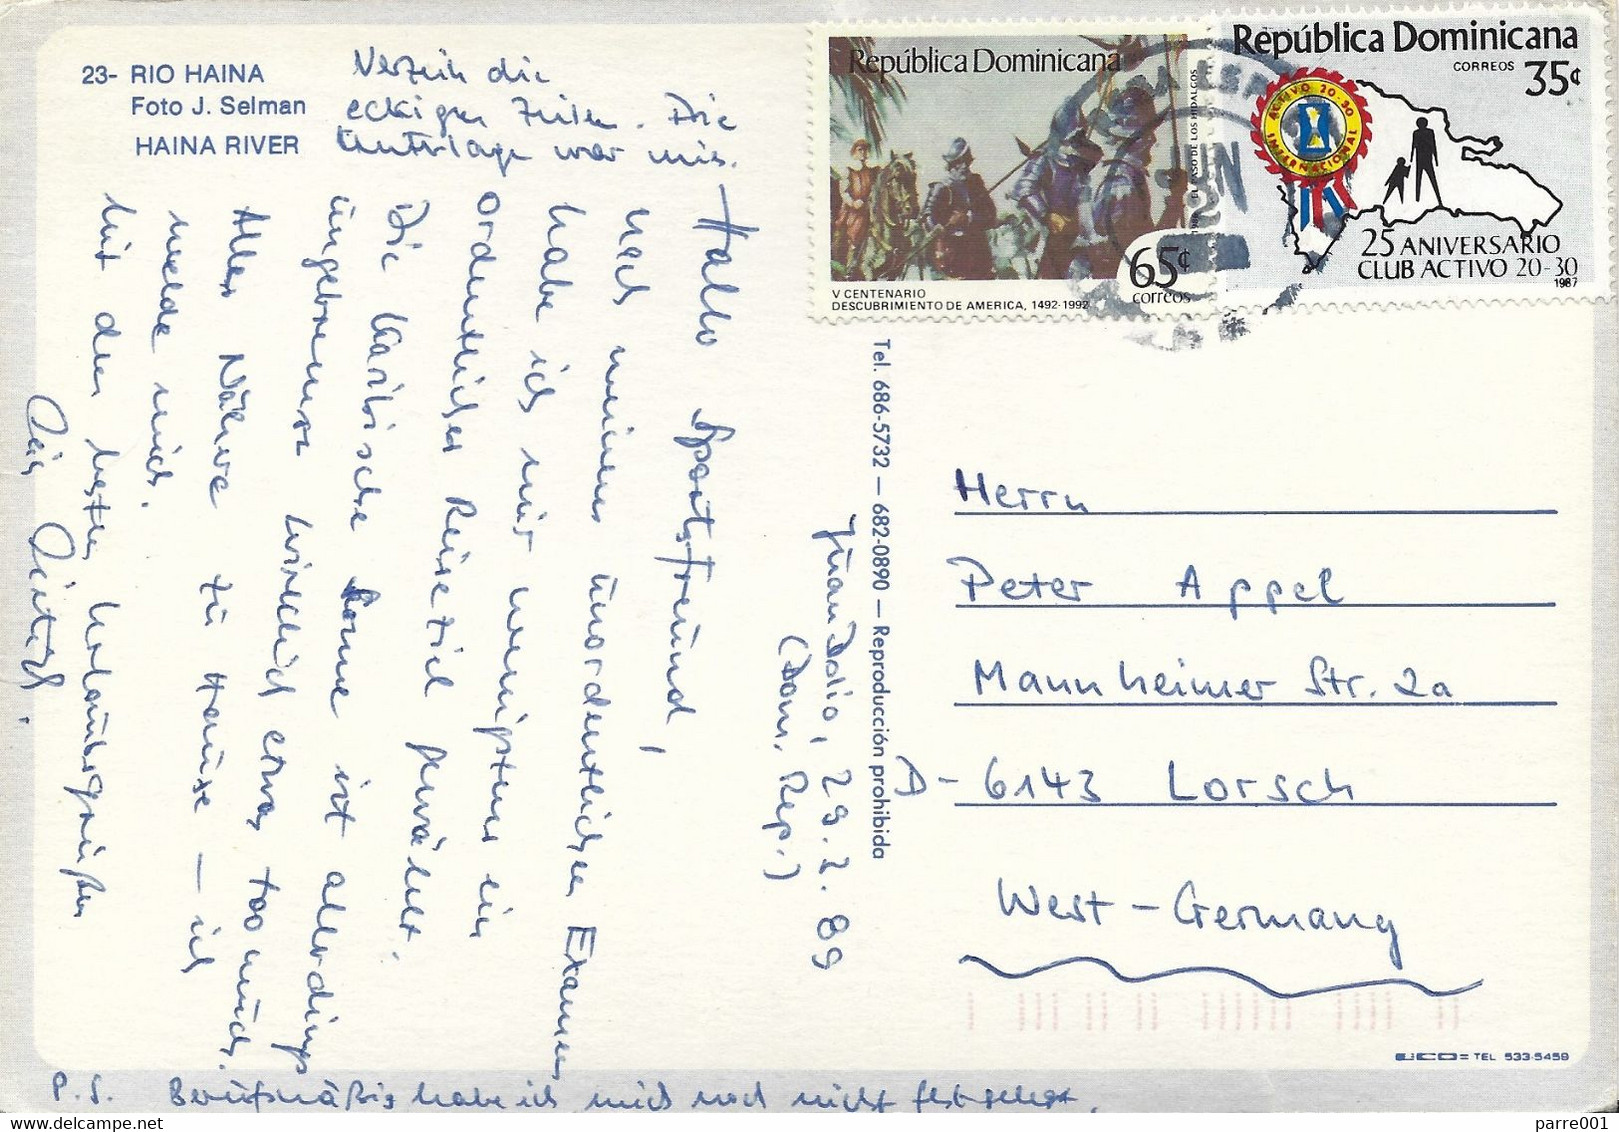 23- RIO HAINA
Foto J. Selman
HAINA RIVER
Verzeih die
eckigen Zeilen. Die
Unterlage war mies.
Juan Dolio, 29.2.89
(Dom. Rep.)
Hallo Sportsfreund,
nach meinem unordentlichen Examen
habe ich mir wenigstens ein
ordentliches Reiseziel gewählt.
Die karibische Sonne ist allerdings
ungebremst wirklich etwas too much.
Alles Nähere zu Hause – ich
melde mich.
Mit den besten Urlaubsgrüßen
Dein
P.S. Berufsmäßig habe ich mich noch nicht festgelegt.
República Dominicana
EL PASO DE LOS HIDALGOS
65¢
correos
V CENTENARIO
DESCUBRIMIENTO DE AMERICA, 1492-1992
República Dominicana
CORREOS 35¢
ACTIVO 20-30
INTERNACIONAL
25 ANIVERSARIO
CLUB ACTIVO 20-30
1987
JUN
Tel. 686-5732 — 682-0890 — Reproducción prohibida
Herrn
Peter Appel
Mannheimer Str. 2a
D-6143 Lorsch
West-Germany
TEL 533-5459
parre001